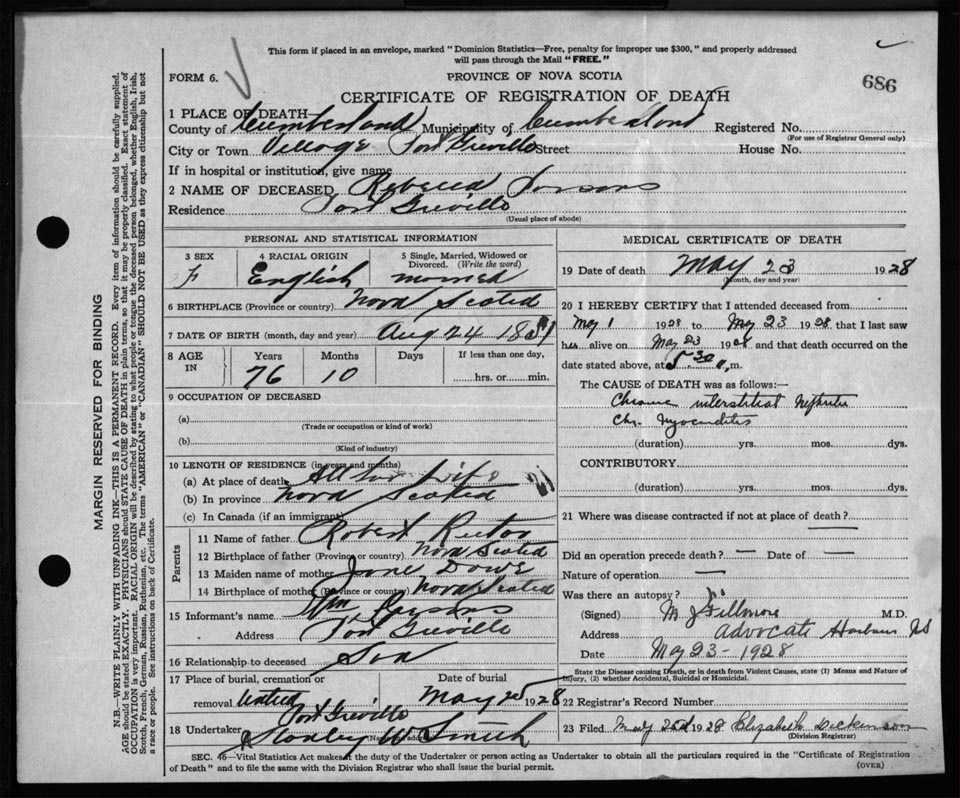 This form if placed in an envelope, marked "Dominion Statistics—Free, penalty for improper use $300," and properly addressed
will pass through the Mail "FREE."
FORM 6.
PROVINCE OF NOVA SCOTIA
686
CERTIFICATE OF REGISTRATION OF DEATH
1 PLACE OF DEATH
County of Cumberland Municipality of Cumberland Registered No.
(For use of Registrar General only)
City or Town Village Port Greville Street House No.
If in hospital or institution, give name
2 NAME OF DECEASED Rebecca Parsons
Residence Port Greville
(Usual place of abode)
PERSONAL AND STATISTICAL INFORMATION
3 SEX 4 RACIAL ORIGIN 5 Single, Married, Widowed or
Divorced. (Write the word)
F English married
6 BIRTHPLACE (Province or country) Nova Scotia
7 DATE OF BIRTH (month, day and year) Aug 24 1851
8 AGE IN Years Months Days If less than one day,
76 10 hrs. or min.
9 OCCUPATION OF DECEASED
(a)
(Trade or occupation or kind of work)
(b)
(Kind of industry)
10 LENGTH OF RESIDENCE (in years and months)
(a) At place of death All her life
(b) In province Nova Scotia
(c) In Canada (if an immigrant)
Parents
11 Name of father Robert
12 Birthplace of father (Province or country) Nova Scotia
13 Maiden name of mother Jane Dowe
14 Birthplace of mother (Province or country) Nova Scotia
15 Informant's name Wm Parsons
Address Port Greville
16 Relationship to deceased Son
17 Place of burial, cremation or Date of burial
removal May 25 1928
Port Greville
18 Undertaker Stanley W Smith
MEDICAL CERTIFICATE OF DEATH
19 Date of death May 23 1928
(Month, day and year)
20 I HEREBY CERTIFY that I attended deceased from
May 1 1928 to May 23 1928 that I last saw
her alive on May 23 1928 and that death occurred on the
date stated above, at 5 30 a.m.
The CAUSE of DEATH was as follows:—
Chronic interstitial nephritis
Chr. Myocarditis
(duration) yrs. mos. dys.
CONTRIBUTORY
(duration) yrs. mos. dys.
21 Where was disease contracted if not at place of death?
Did an operation precede death? — Date of —
Nature of operation —
Was there an autopsy?
(Signed) M J Fillmore M.D.
Address Advocate Harbour NS
Date May 23 - 1928
State the Disease causing Death, or in death from Violent Causes, state (1) Means and Nature of
Injury, (2) whether Accidental, Suicidal or Homicidal.
22 Registrar's Record Number
23 Filed May 1928 Elizabeth Dickinson
(Division Registrar)
SEC. 46—Vital Statistics Act makes it the duty of the Undertaker or person acting as Undertaker to obtain all the particulars required in the "Certificate of Registration
of Death" and to file the same with the Division Registrar who shall issue the burial permit.
(OVER)
MARGIN RESERVED FOR BINDING
N.B.—WRITE PLAINLY WITH UNFADING INK—THIS IS A PERMANENT RECORD. Every item of information should be carefully supplied.
AGE should be stated EXACTLY. PHYSICIANS should STATE CAUSE OF DEATH in plain terms, so that it may be properly classified. Exact statement of
OCCUPATION is very important. RACIAL ORIGIN will be described by stating to what people or tongue the deceased person belonged, whether English, Irish,
Scotch, French, German, Russian, Ruthenian, etc. The terms "AMERICAN" or "CANADIAN" SHOULD NOT BE USED as they express citizenship but not
a race or people. See instructions on back of Certificate.